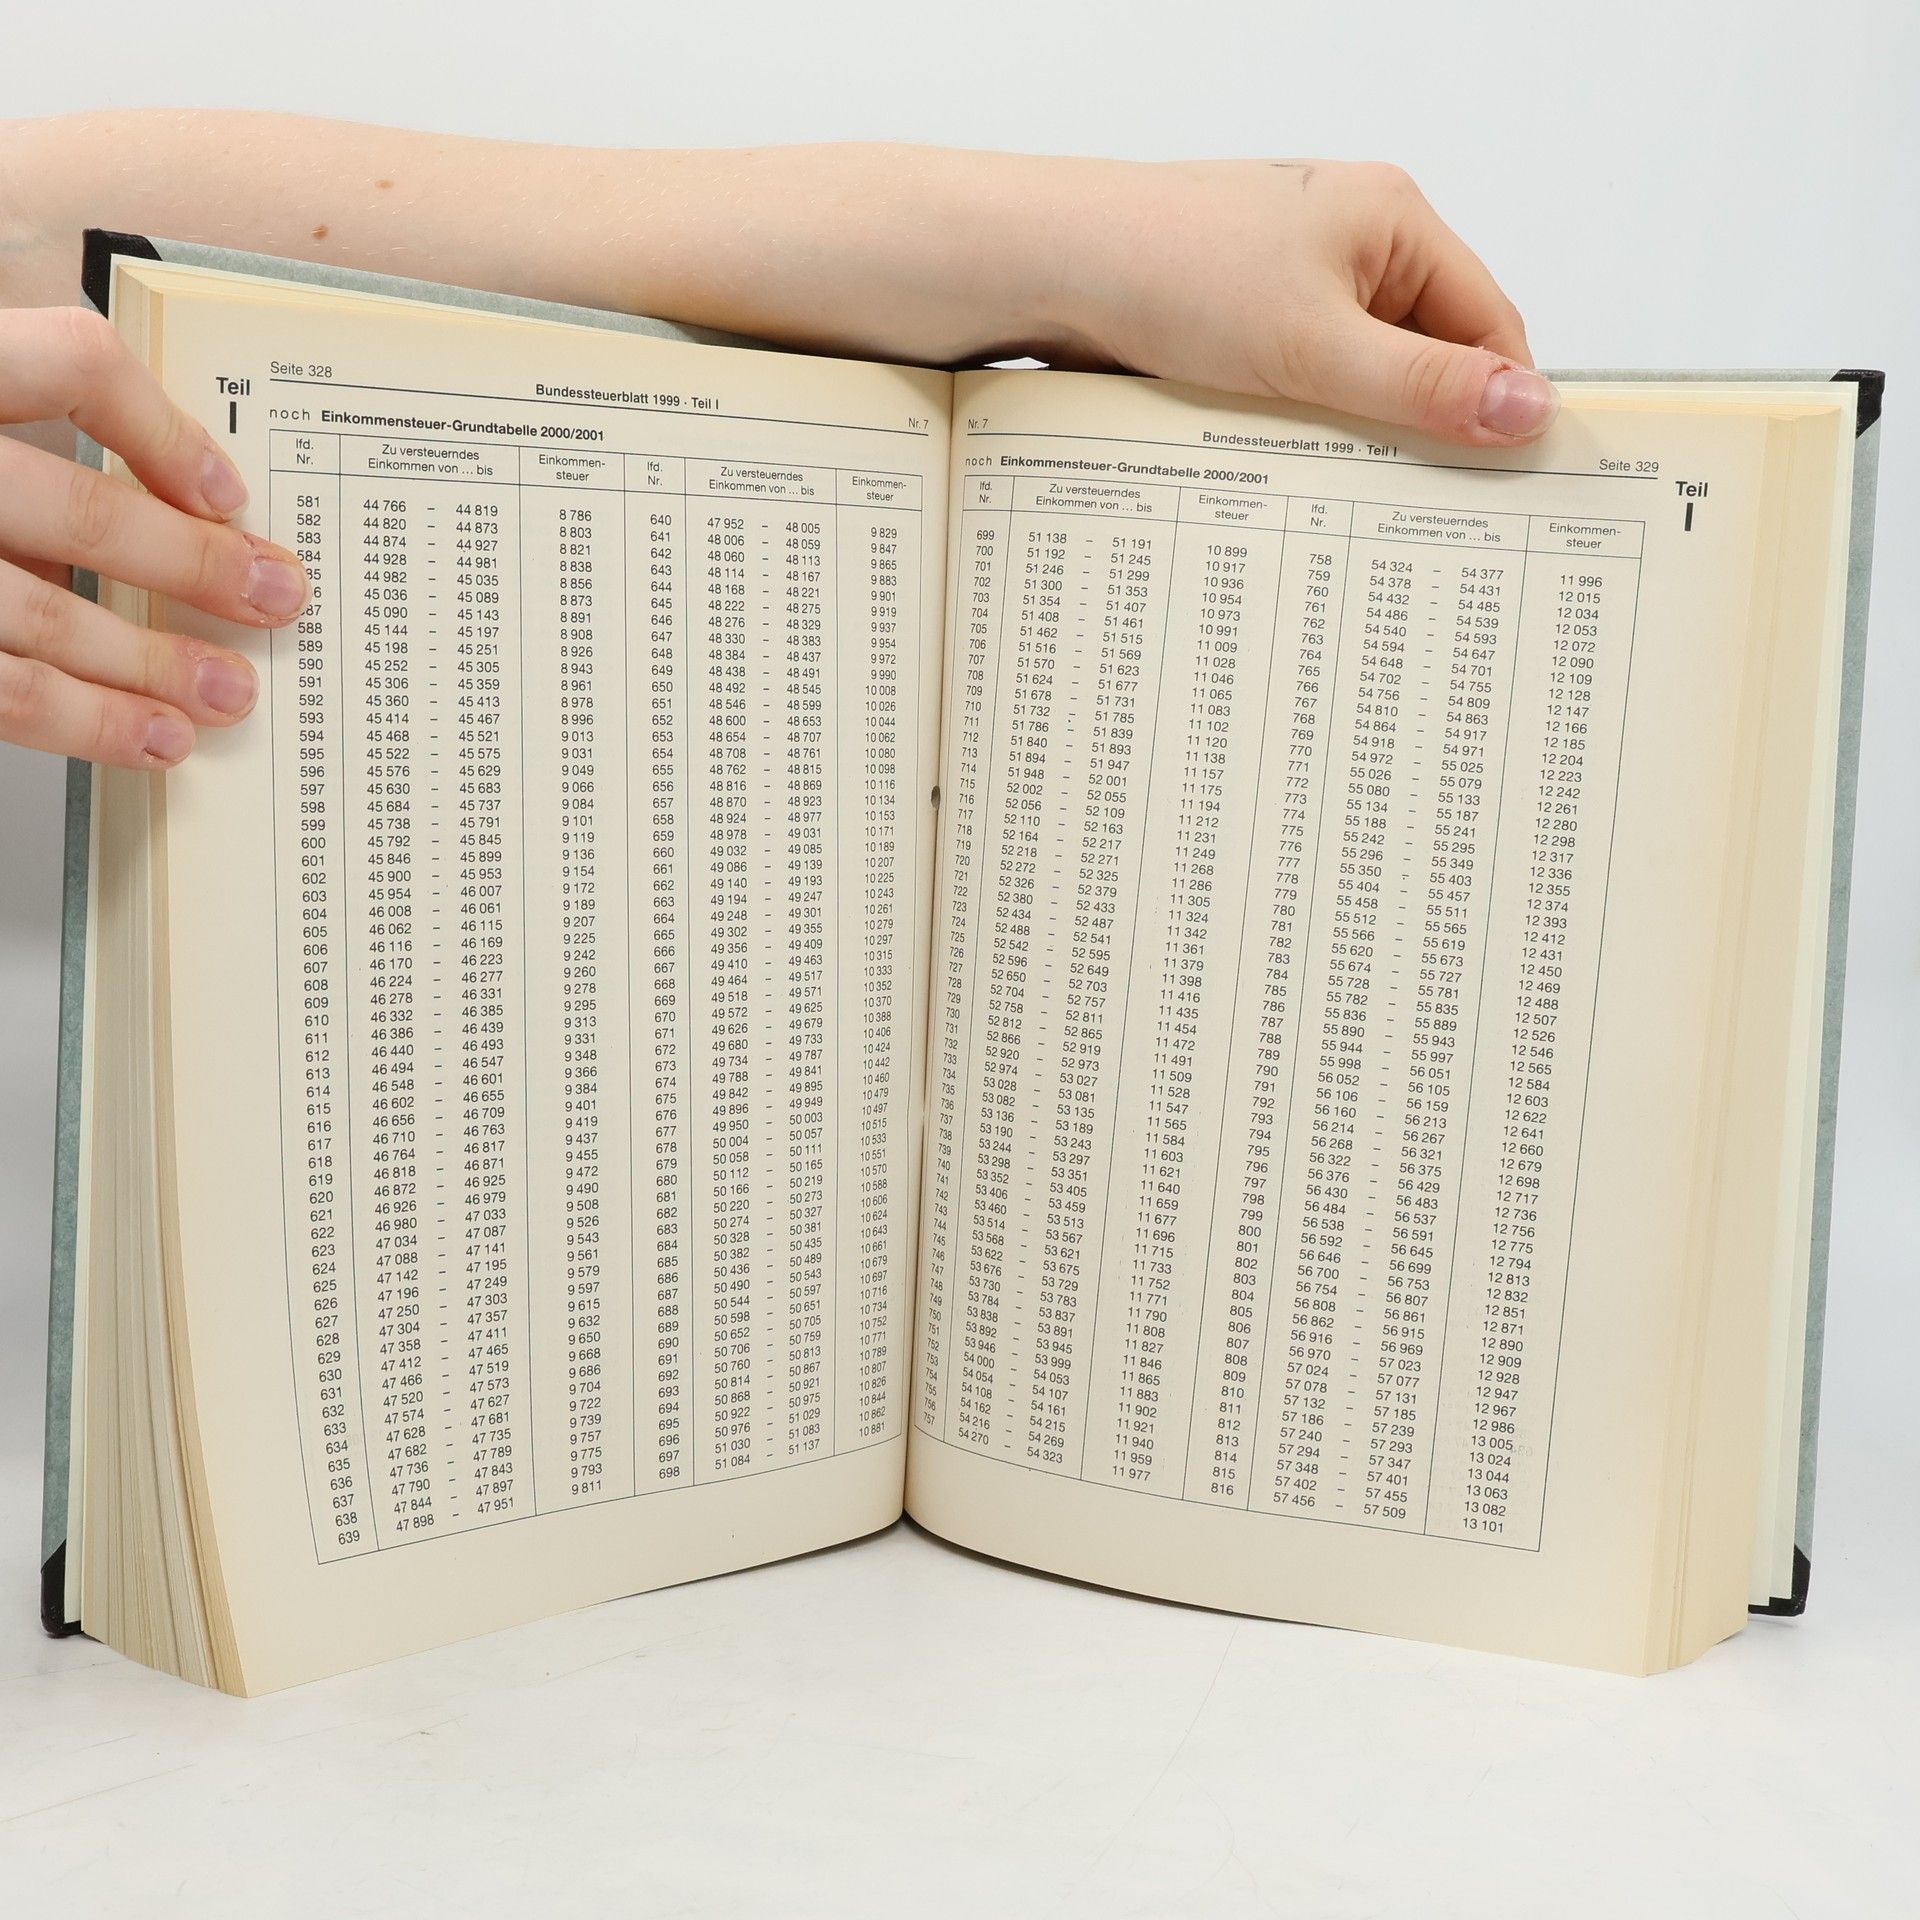 Seite 328
Teil
I
Bundessteuerblatt 1999 · Teil I
Nr. 7
noch Einkommensteuer-Grundtabelle 2000/2001
lfd. Nr.
Zu versteuerndes Einkommen von ... bis
Einkommen-steuer
lfd. Nr.
Zu versteuerndes Einkommen von ... bis
Einkommen-steuer
581 44 766 – 44 819 8 786
582 44 820 – 44 873 8 803
583 44 874 – 44 927 8 821
584 44 928 – 44 981 8 838
85 44 982 – 45 035 8 856
6 45 036 – 45 089 8 873
87 45 090 – 45 143 8 891
588 45 144 – 45 197 8 908
589 45 198 – 45 251 8 926
590 45 252 – 45 305 8 943
591 45 306 – 45 359 8 961
592 45 360 – 45 413 8 978
593 45 414 – 45 467 8 996
594 45 468 – 45 521 9 013
595 45 522 – 45 575 9 031
596 45 576 – 45 629 9 049
597 45 630 – 45 683 9 066
598 45 684 – 45 737 9 084
599 45 738 – 45 791 9 101
600 45 792 – 45 845 9 119
601 45 846 – 45 899 9 136
602 45 900 – 45 953 9 154
603 45 954 – 46 007 9 172
604 46 008 – 46 061 9 189
605 46 062 – 46 115 9 207
606 46 116 – 46 169 9 225
607 46 170 – 46 223 9 242
608 46 224 – 46 277 9 260
609 46 278 – 46 331 9 278
610 46 332 – 46 385 9 295
611 46 386 – 46 439 9 313
612 46 440 – 46 493 9 331
613 46 494 – 46 547 9 348
614 46 548 – 46 601 9 366
615 46 602 – 46 655 9 384
616 46 656 – 46 709 9 401
617 46 710 – 46 763 9 419
618 46 764 – 46 817 9 437
619 46 818 – 46 871 9 455
620 46 872 – 46 925 9 472
621 46 926 – 46 979 9 490
622 46 980 – 47 033 9 508
623 47 034 – 47 087 9 526
624 47 088 – 47 141 9 543
625 47 142 – 47 195 9 561
626 47 196 – 47 249 9 579
627 47 250 – 47 303 9 597
628 47 304 – 47 357 9 615
629 47 358 – 47 411 9 632
630 47 412 – 47 465 9 650
631 47 466 – 47 519 9 668
632 47 520 – 47 573 9 686
633 47 574 – 47 627 9 704
634 47 628 – 47 681 9 722
635 47 682 – 47 735 9 739
636 47 736 – 47 789 9 757
637 47 790 – 47 843 9 775
638 47 844 – 47 897 9 793
639 47 898 – 47 951 9 811
640 47 952 – 48 005 9 829
641 48 006 – 48 059 9 847
642 48 060 – 48 113 9 865
643 48 114 – 48 167 9 883
644 48 168 – 48 221 9 901
645 48 222 – 48 275 9 919
646 48 276 – 48 329 9 937
647 48 330 – 48 383 9 954
648 48 384 – 48 437 9 972
649 48 438 – 48 491 9 990
650 48 492 – 48 545 10 008
651 48 546 – 48 599 10 026
652 48 600 – 48 653 10 044
653 48 654 – 48 707 10 062
654 48 708 – 48 761 10 080
655 48 762 – 48 815 10 098
656 48 816 – 48 869 10 116
657 48 870 – 48 923 10 134
658 48 924 – 48 977 10 153
659 48 978 – 49 031 10 171
660 49 032 – 49 085 10 189
661 49 086 – 49 139 10 207
662 49 140 – 49 193 10 225
663 49 194 – 49 247 10 243
664 49 248 – 49 301 10 261
665 49 302 – 49 355 10 279
666 49 356 – 49 409 10 297
667 49 410 – 49 463 10 315
668 49 464 – 49 517 10 333
669 49 518 – 49 571 10 352
670 49 572 – 49 625 10 370
671 49 626 – 49 679 10 388
672 49 680 – 49 733 10 406
673 49 734 – 49 787 10 424
674 49 788 – 49 841 10 442
675 49 842 – 49 895 10 460
676 49 896 – 49 949 10 479
677 49 950 – 50 003 10 497
678 50 004 – 50 057 10 515
679 50 058 – 50 111 10 533
680 50 112 – 50 165 10 551
681 50 166 – 50 219 10 570
682 50 220 – 50 273 10 588
683 50 274 – 50 327 10 606
684 50 328 – 50 381 10 624
685 50 382 – 50 435 10 643
686 50 436 – 50 489 10 661
687 50 490 – 50 543 10 679
688 50 544 – 50 597 10 697
689 50 598 – 50 651 10 716
690 50 652 – 50 705 10 734
691 50 706 – 50 759 10 752
692 50 760 – 50 813 10 771
693 50 814 – 50 867 10 789
694 50 868 – 50 921 10 807
695 50 922 – 50 975 10 826
696 50 976 – 51 029 10 844
697 51 030 – 51 083 10 862
698 51 084 – 51 137 10 881
Nr. 7
Bundessteuerblatt 1999 · Teil I
Seite 329
Teil
I
noch Einkommensteuer-Grundtabelle 2000/2001
lfd. Nr.
Zu versteuerndes Einkommen von ... bis
Einkommen-steuer
lfd. Nr.
Zu versteuerndes Einkommen von ... bis
Einkommen-steuer
699 51 138 – 51 191 10 899
700 51 192 – 51 245 10 917
701 51 246 – 51 299 10 936
702 51 300 – 51 353 10 954
703 51 354 – 51 407 10 973
704 51 408 – 51 461 10 991
705 51 462 – 51 515 11 009
706 51 516 – 51 569 11 028
707 51 570 – 51 623 11 046
708 51 624 – 51 677 11 065
709 51 678 – 51 731 11 083
710 51 732 – 51 785 11 102
711 51 786 – 51 839 11 120
712 51 840 – 51 893 11 138
713 51 894 – 51 947 11 157
714 51 948 – 52 001 11 175
715 52 002 – 52 055 11 194
716 52 056 – 52 109 11 212
717 52 110 – 52 163 11 231
718 52 164 – 52 217 11 249
719 52 218 – 52 271 11 268
720 52 272 – 52 325 11 286
721 52 326 – 52 379 11 305
722 52 380 – 52 433 11 324
723 52 434 – 52 487 11 342
724 52 488 – 52 541 11 361
725 52 542 – 52 595 11 379
726 52 596 – 52 649 11 398
727 52 650 – 52 703 11 416
728 52 704 – 52 757 11 435
729 52 758 – 52 811 11 454
730 52 812 – 52 865 11 472
731 52 866 – 52 919 11 491
732 52 920 – 52 973 11 509
733 52 974 – 53 027 11 528
734 53 028 – 53 081 11 547
735 53 082 – 53 135 11 565
736 53 136 – 53 189 11 584
737 53 190 – 53 243 11 603
738 53 244 – 53 297 11 621
739 53 298 – 53 351 11 640
740 53 352 – 53 405 11 659
741 53 406 – 53 459 11 677
742 53 460 – 53 513 11 696
743 53 514 – 53 567 11 715
744 53 568 – 53 621 11 733
745 53 622 – 53 675 11 752
746 53 676 – 53 729 11 771
747 53 730 – 53 783 11 790
748 53 784 – 53 837 11 808
749 53 838 – 53 891 11 827
750 53 892 – 53 945 11 846
751 53 946 – 53 999 11 865
752 54 000 – 54 053 11 883
753 54 054 – 54 107 11 902
754 54 108 – 54 161 11 921
755 54 162 – 54 215 11 940
756 54 216 – 54 269 11 959
757 54 270 – 54 323 11 977
758 54 324 – 54 377 11 996
759 54 378 – 54 431 12 015
760 54 432 – 54 485 12 034
761 54 486 – 54 539 12 053
762 54 540 – 54 593 12 072
763 54 594 – 54 647 12 090
764 54 648 – 54 701 12 109
765 54 702 – 54 755 12 128
766 54 756 – 54 809 12 147
767 54 810 – 54 863 12 166
768 54 864 – 54 917 12 185
769 54 918 – 54 971 12 204
770 54 972 – 55 025 12 223
771 55 026 – 55 079 12 242
772 55 080 – 55 133 12 261
773 55 134 – 55 187 12 280
774 55 188 – 55 241 12 298
775 55 242 – 55 295 12 317
776 55 296 – 55 349 12 336
777 55 350 – 55 403 12 355
778 55 404 – 55 457 12 374
779 55 458 – 55 511 12 393
780 55 512 – 55 565 12 412
781 55 566 – 55 619 12 431
782 55 620 – 55 673 12 450
783 55 674 – 55 727 12 469
784 55 728 – 55 781 12 488
785 55 782 – 55 835 12 507
786 55 836 – 55 889 12 526
787 55 890 – 55 943 12 546
788 55 944 – 55 997 12 565
789 55 998 – 56 051 12 584
790 56 052 – 56 105 12 603
791 56 106 – 56 159 12 622
792 56 160 – 56 213 12 641
793 56 214 – 56 267 12 660
794 56 268 – 56 321 12 679
795 56 322 – 56 375 12 698
796 56 376 – 56 429 12 717
797 56 430 – 56 483 12 736
798 56 484 – 56 537 12 756
799 56 538 – 56 591 12 775
800 56 592 – 56 645 12 794
801 56 646 – 56 699 12 813
802 56 700 – 56 753 12 832
803 56 754 – 56 807 12 851
804 56 808 – 56 861 12 871
805 56 862 – 56 915 12 890
806 56 916 – 56 969 12 909
807 56 970 – 57 023 12 928
808 57 024 – 57 077 12 947
809 57 078 – 57 131 12 967
810 57 132 – 57 185 12 986
811 57 186 – 57 239 13 005
812 57 240 – 57 293 13 024
813 57 294 – 57 347 13 044
814 57 348 – 57 401 13 063
815 57 402 – 57 455 13 082
816 57 456 – 57 509 13 101